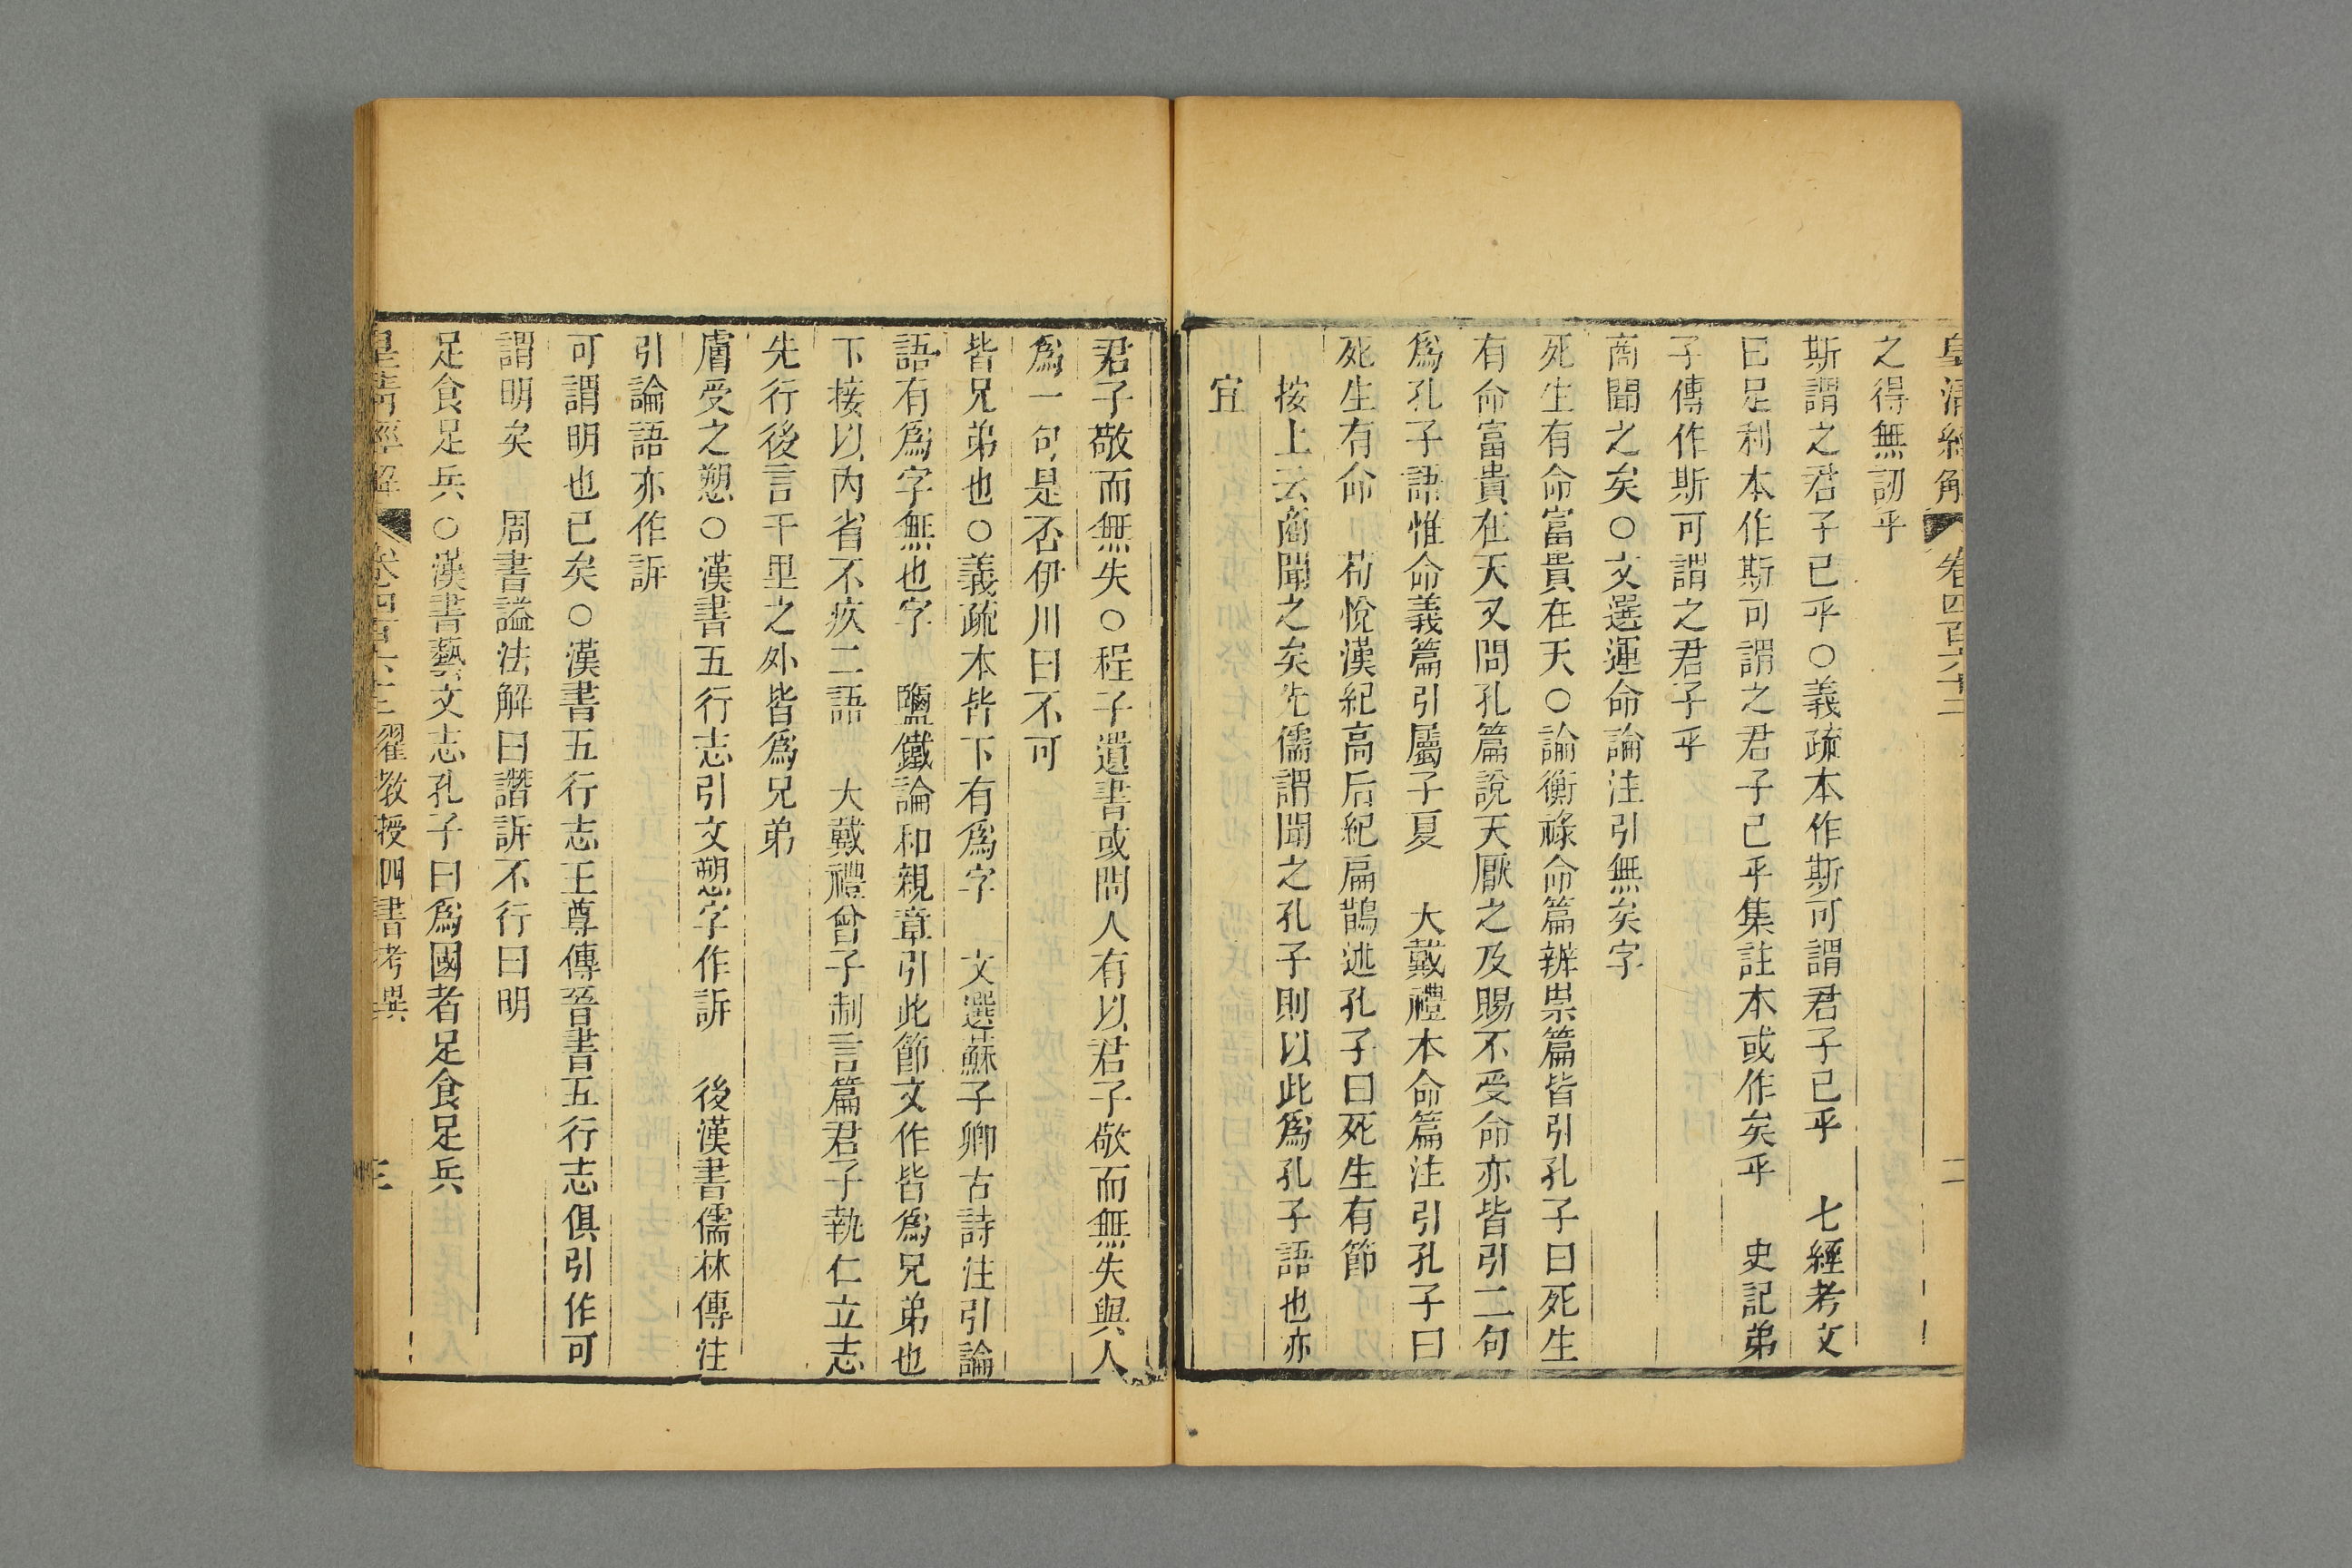 皇清經解 卷四百六十二 二
之得無訒乎
斯謂之君子已乎○義疏本作斯可謂君子已乎 七經考文
曰足利本作斯可謂之君子已乎集註本或作矣乎 史記弟
子傳作斯可謂之君子乎
商聞之矣○文選運命論注引無矣字
死生有命富貴在天○論衡祿命篇辨祟篇皆引孔子曰死生
有命富貴在天又問孔篇說天厭之及賜不受命亦皆引二句
爲孔子語惟命義篇引屬子夏 大戴禮本命篇注引孔子曰
死生有命 荀悅漢紀高后紀扁鵲述孔子曰死生有節
按上云商聞之矣先儒謂聞之孔子則以此爲孔子語也亦
宜
君子敬而無失○程子遺書或問人有以君子敬而無失與人
爲一句是否伊川曰不可
皆兄弟也○義疏本皆下有爲字 文選蘇子卿古詩注引論
語有爲字無也字 鹽鐵論和親章引此節文作皆爲兄弟也
下接以內省不疚二語 大戴禮曾子制言篇君子執仁立志
先行後言千里之外皆爲兄弟
膚受之愬○漢書五行志引文愬字作訴 後漢書儒林傳注
引論語亦作訴
可謂明也已矣○漢書五行志王尊傳晉書五行志俱引作可
謂明矣 周書謚法解曰譖訴不行曰明
足食足兵○漢書藝文志孔子曰爲國者足食足兵
皇清經解 卷四百六十二 翟教授四書考異 三